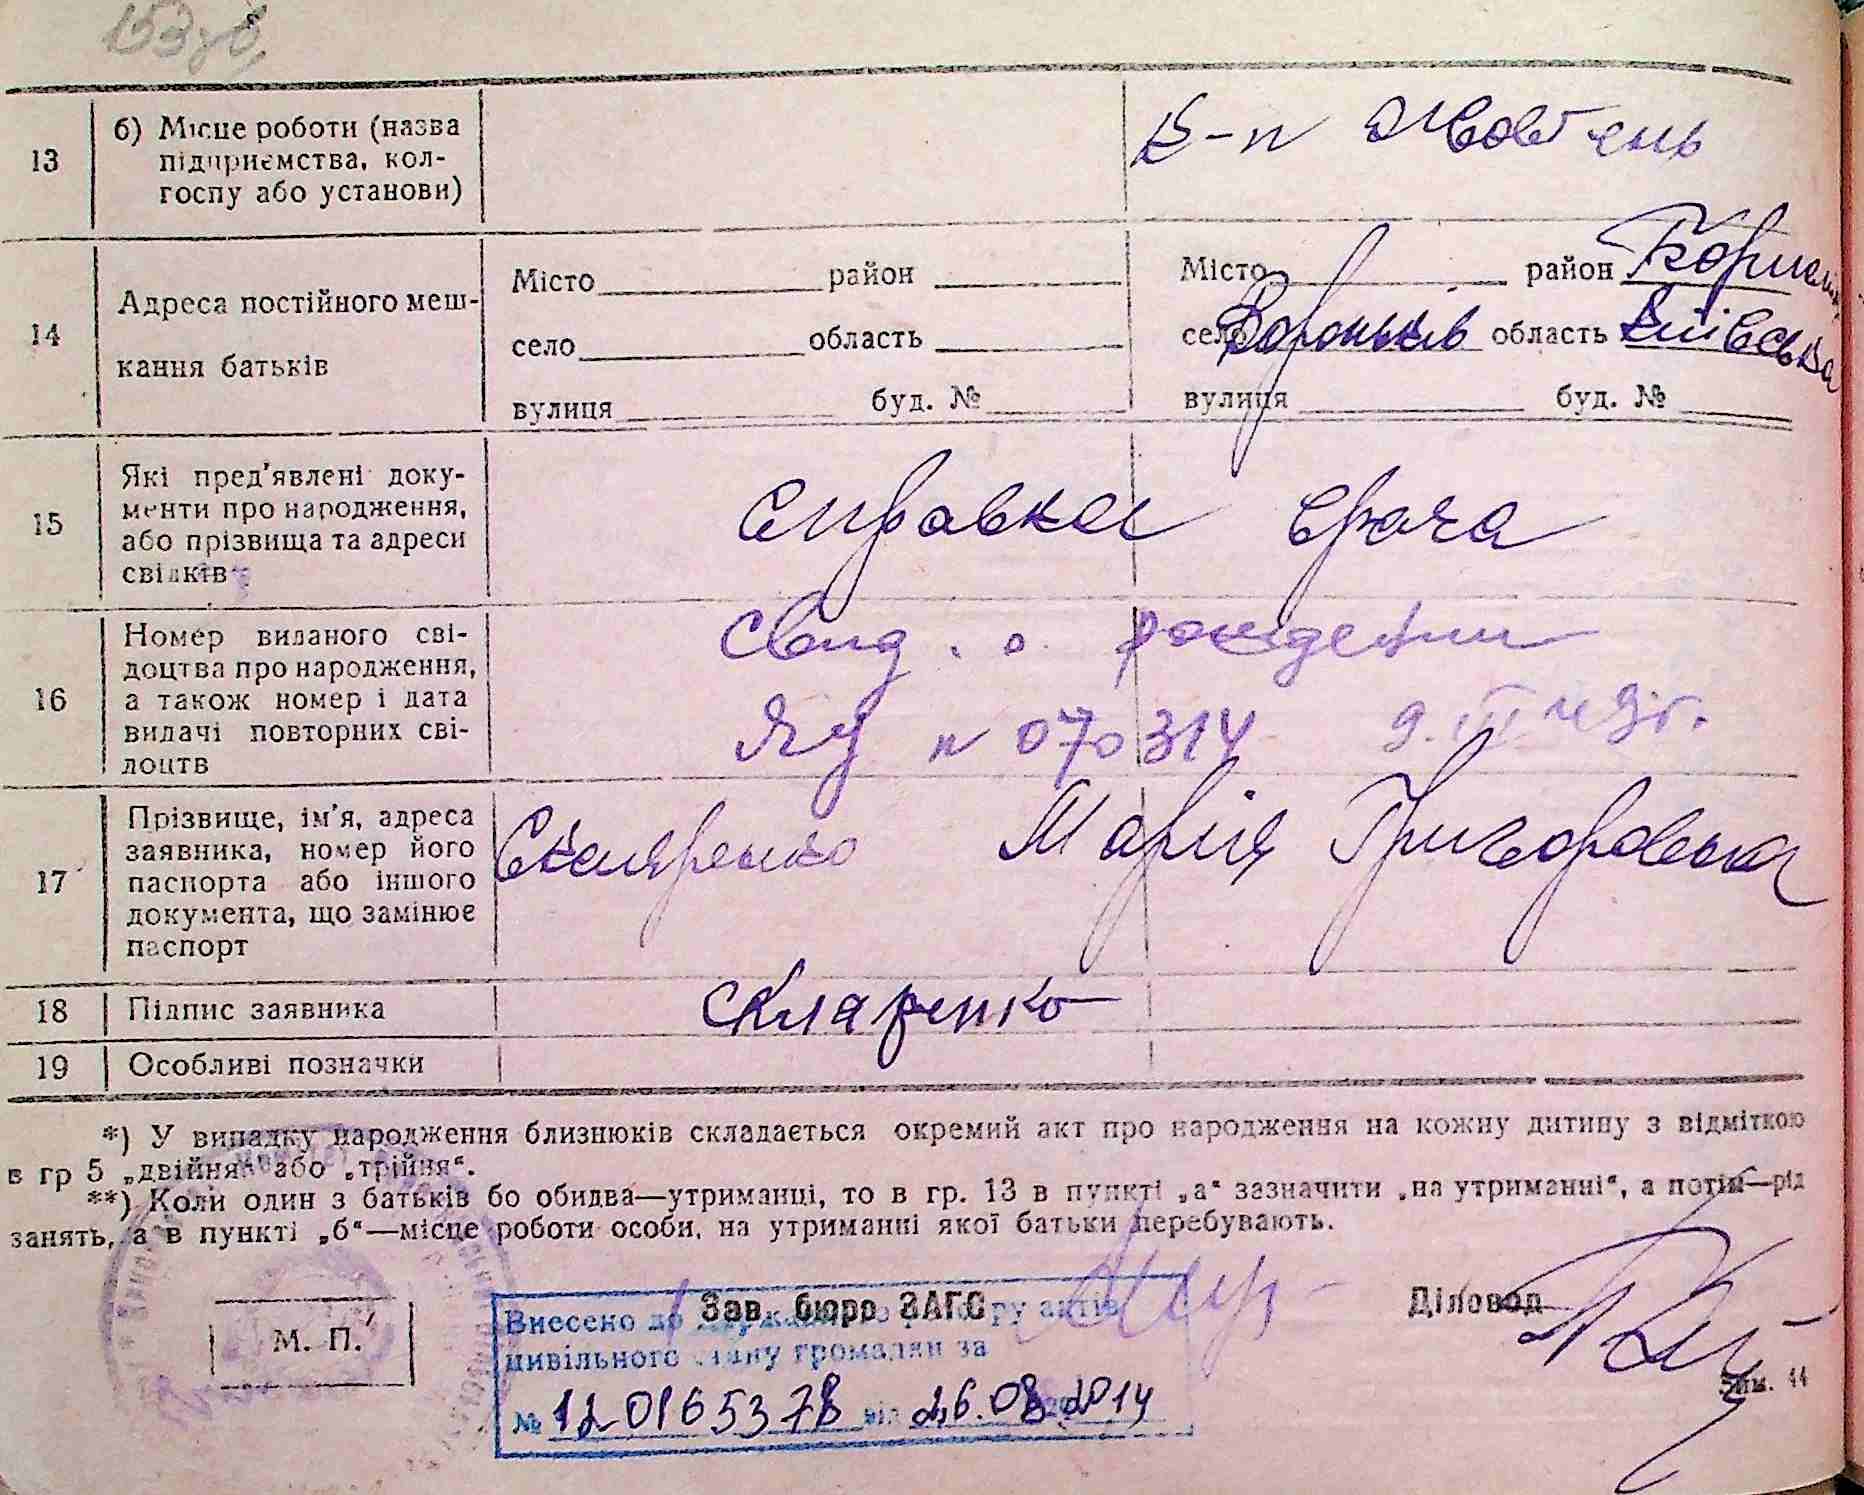 13 б) Місце роботи (назва підприємства, колгоспу або установи) К-п Жовтень
14 Адреса постійного мешкання батьків
Місто район Місто район Бориспіль
село область село Вороньків область Київська
вулиця буд. № вулиця буд. №
15 Які пред'явлені документи про народження, або прізвища та адреси свідків Справка врача
16 Номер виданого свідоцтва про народження, а також номер і дата видачі повторних свідоцтв
Свид. о рождении
№ 070314 9.III 49г.
17 Прізвище, ім'я, адреса заявника, номер його паспорта або іншого документа, що замінює паспорт Скляренко Марія Григоровна
18 Підпис заявника Скляренко
19 Особливі позначки
*) У випадку народження близнюків складається окремий акт про народження на кожну дитину з відміткою
в гр 5 „двійня“ або „трійня“.
**) Коли один з батьків бо обидва—утриманці, то в гр. 13 в пункті „а“ зазначити „на утриманні“, а потім—рід
занять, а в пункті „б“—місце роботи особи, на утриманні якої батьки перебувають.
М. П.
Зав. бюро ЗАГС
Діловод
Внесено до Державного реєстру актів
цивільного стану громадян за
№ 120165378 від 26.08.2014
Зам. 44